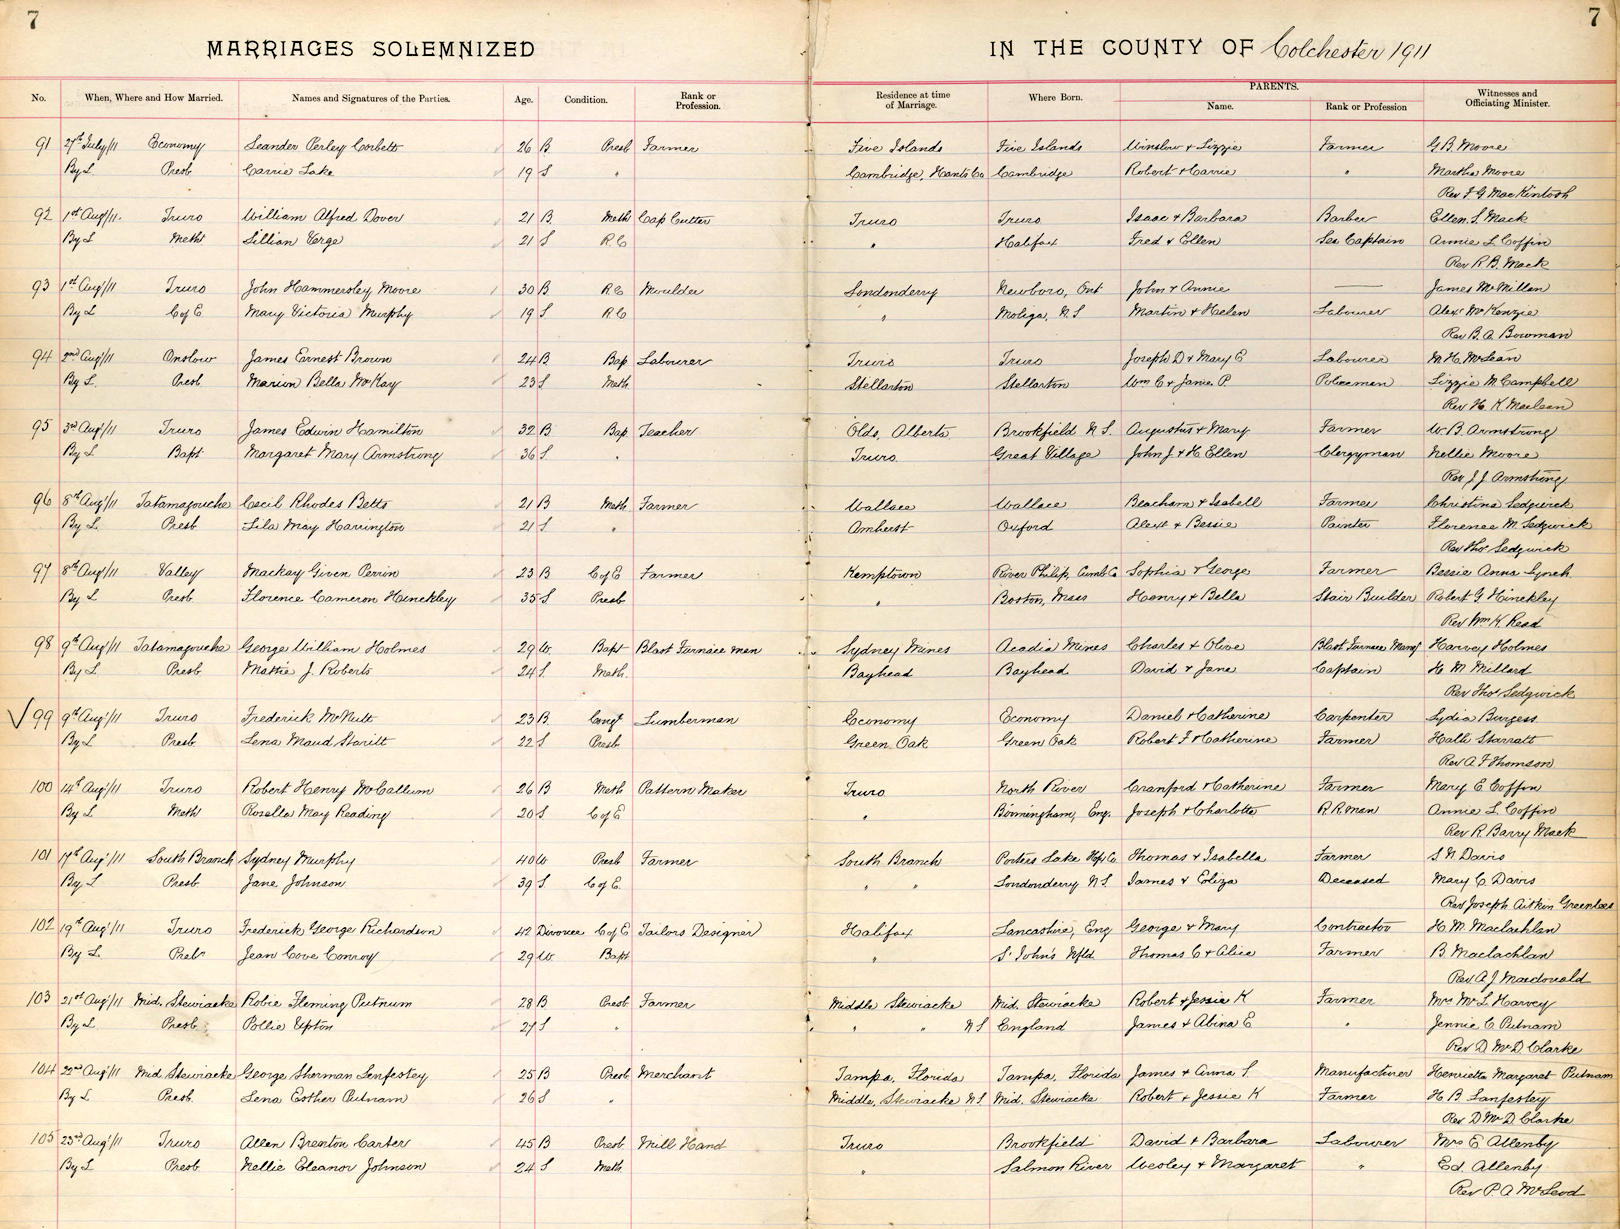 7 7
MARRIAGES SOLEMNIZED IN THE COUNTY OF Colchester 1911
No. When, Where and How Married. Names and Signatures of the Parties. Age. Condition. Rank or Profession. Residence at time of Marriage. Where Born. PARENTS. Name. Rank or Profession Witnesses and Officiating Minister.
91 27th July/11 Economy Leander Perley Corbett 26 B Presb Farmer Five Islands Five Islands Winslow & Lizzie Farmer G B. Moore
By L Presb Carrie Lake 19 S " Cambridge, Hants Co Cambridge Robert & Carrie " Martha Moore
Rev F G MacKintosh
92 1st Aug/11. Truro William Alfred Dover 21 B. Meth Cap Cutter Truro Truro Isaac & Barbara Barber Ellen. S. Mack
By L Meth Lillian Verge 21 S R C " Halifax Fred & Ellen Sea Captain Annie L Coffin
Rev R B. Mack
93 1st Aug/11 Truro John Hammersley Moore 30 B R C Moulder Londonderry Newboro, Ont John & Annie — James McMillan
By L C of E Mary Victoria Murphy 19 S R C " Moliga, N S Martin & Helen Labourer Alexr McKenzie
Rev B. A. Bowman
94 2nd Aug/11 Onslow James Ernest Brown 24 B Bap Labourer Truro Truro Joseph D & Mary E Labourer M H. McLean
By L. Presb Marion Bella McKay 23 S Meth. Stellarton Stellarton Wm C & Janie P Policeman Lizzie M. Campbell
Rev H. K Maclean
95 3rd Aug/11 Truro James Edwin Hamilton 32 B Bap. Teacher Olds, Alberta Brookfield N S. Augustus & Mary Farmer W. B. Armstrong
By L Bapt Margaret Mary Armstrong 36 S. " Truro. Great Village John J. & H. Ellen Clergyman Nellie Moore
Rev J. J Armstrong
96 8th Aug/11 Tatamagouche Cecil Rhodes Betts 21 B Meth. Farmer Wallace Wallace Beacham & Isabell Farmer Christina Sedgwick
By L Presb Lila May Harrington 21 S " Amherst Oxford Alext & Bessie Painter Florence M. Sedgwick
Rev Thos Sedgwick
97 8th Aug/11 Valley Mackay Given Perrin 23 B C of E Farmer Kemptown River Philip, Cumb Co Sophia & George Farmer Bessie Anna Lynch
By L Presb Florence Cameron Hinckley 35 S Presb " Boston, Mass Henry & Bella Stair Builder Robert G Hinckley
Rev Wm K Read
98 9th Aug/11 Tatamagouche George William Holmes 29 W. Bapt Blast Furnace man Sydney Mines Acadia Mines Charles & Olive Blast Furnace Mangr Harvey Holmes
By L Presb Mattie J. Roberts 24 S. Meth. Bayhead Bayhead David & Jane Captain H M. Millard
Rev Thos Sedgwick
✓ 99 9th Aug/11 Truro Frederick McNutt 23 B. Congl Lumberman Economy Economy Daniel & Catherine Carpenter Lydia Burgess
By L Presb Lena Maud Staritt 22 S Presb Green Oak Green Oak Robert F & Catherine Farmer Halli Starratt
Rev A. F Thomson
100 14th Aug/11 Truro Robert Henry McCallum 26 B Meth Pattern Maker Truro North River Cranford & Catherine Farmer Mary E Coffin
By L Meth Rosella May Reading 20 S C of E " Birmingham, Eng. Joseph & Charlotte R R. man Annie L Coffin
Rev R. Barry Mack
101 17th Aug/11 South Branch Sydney Murphy 40 W Presb Farmer South Branch Porters Lake Hfx Co. Thomas & Isabella Farmer S N Davis
By L Presb Jane Johnson 39 S. C of E. " " Londonderry N S James & Eliza Deceased Mary C Davis
Rev Joseph Aitkin Greenlees
102 19th Aug/11 Truro Frederick George Richardson 42 Divorcee C of E Tailors Designer Halifax Lancashire, Eng George & Mary Contractor H. M. Maclachlan
By L. Presb Jean Cove Conroy 29 W. Bapt " St John's Nfld Thomas C & Alice Farmer B. Maclachlan
Rev A. J Macdonald
103 21st Aug/11 Mid. Stewiacke Robie Fleming Putnum 28 B Presb Farmer Middle Stewiacke Mid. Stewiacke Robert & Jessie K Farmer Mrs Mc L Harvey
By L Presb Pollie Upton 27 S " " " N S England James & Abina E " Jennie C Putnam
Rev D McD. Clarke
104 22nd Aug/11 Mid. Stewiacke George Sherman Lenfestey 25 B Presb Merchant Tampa, Florida Tampa, Florida James & Anna S. Manufacturer Henrietta Margaret Putnam
By L Presb. Lena Esther Putnam 26 S " Middle, Stewiacke N S Mid. Stewiacke Robert & Jessie K Farmer H B. Lanfestey
Rev D McD Clarke
105 23rd Aug/11 Truro Allen Brenton Carter 45 B Presb Mill Hand Truro Brookfield David & Barbara Labourer Mrs E Allenby
By L Presb Nellie Eleanor Johnson 24 S Meth " Salmon River Wesley & Margaret " Ed. Allenby
Rev P. A McLeod